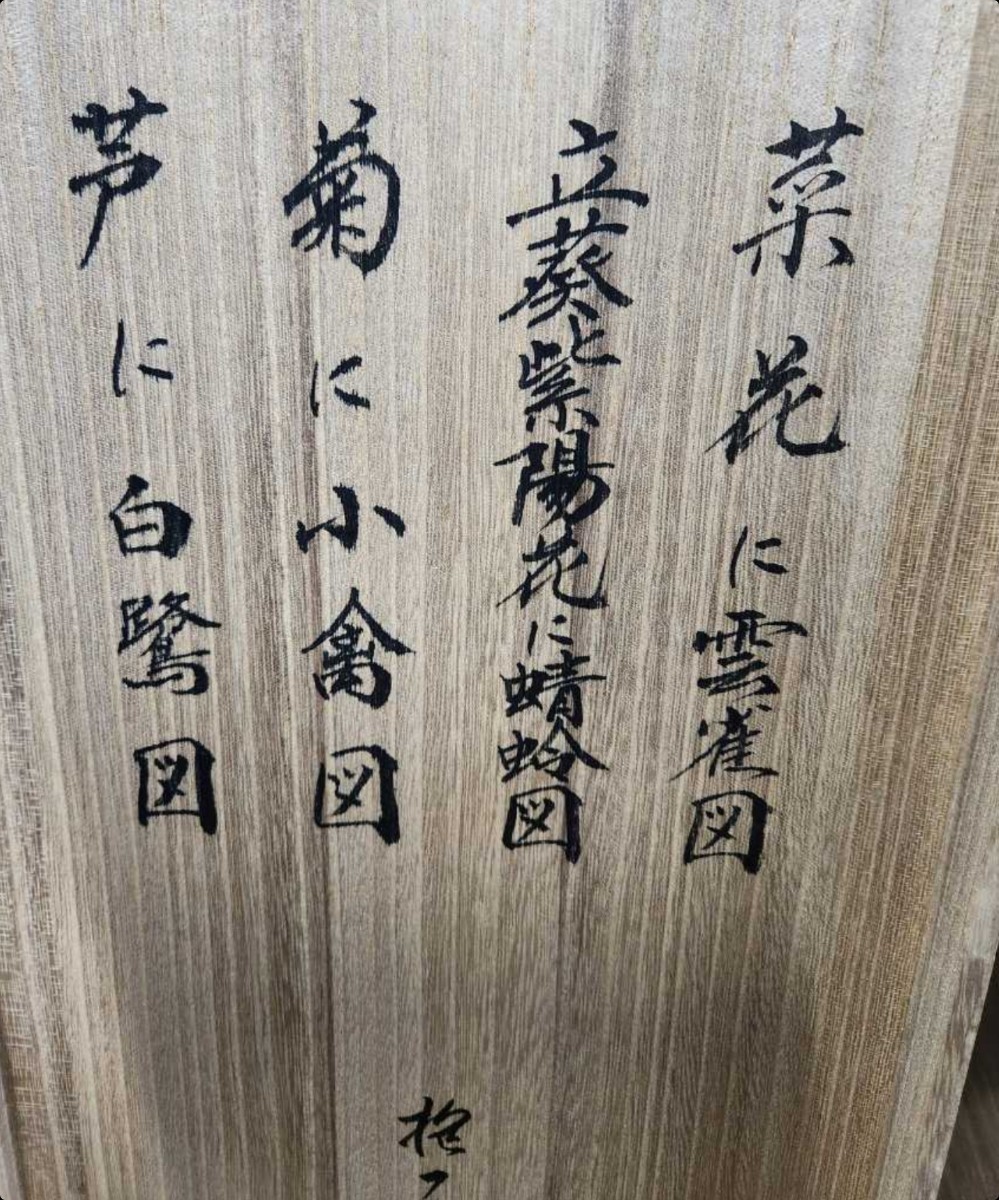 菜花に雲雀図
立葵紫陽花に蜻蛉図
菊に小禽図
芦に白鷺図
抱